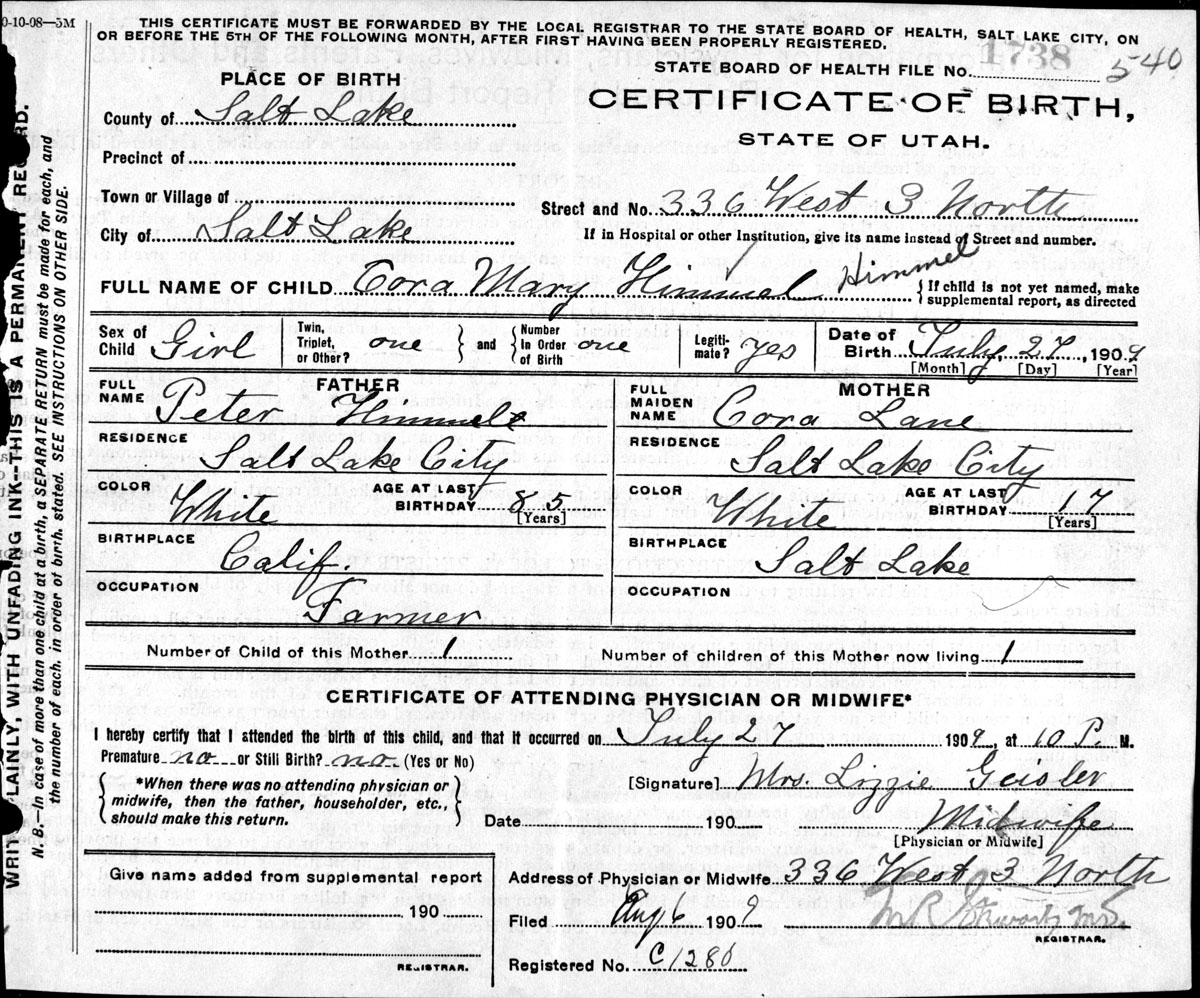 0-10-08—5M
THIS CERTIFICATE MUST BE FORWARDED BY THE LOCAL REGISTRAR TO THE STATE BOARD OF HEALTH, SALT LAKE CITY, ON
OR BEFORE THE 5TH OF THE FOLLOWING MONTH, AFTER FIRST HAVING BEEN PROPERLY REGISTERED.
STATE BOARD OF HEALTH FILE No. 1738 540
PLACE OF BIRTH
CERTIFICATE OF BIRTH,
STATE OF UTAH.
County of Salt Lake
Precinct of
Town or Village of
Street and No. 336 West 3 North
City of Salt Lake
If in Hospital or other Institution, give its name instead of Street and number.
FULL NAME OF CHILD Cora Mary Himmel Himmel
If child is not yet named, make
supplemental report, as directed
Sex of Child Girl
Twin, Triplet, or Other? one and Number In Order of Birth one
Legiti-mate? yes
Date of Birth July, 27, 1909
[Month] [Day] [Year]
FATHER
FULL NAME Peter Himmel
RESIDENCE
Salt Lake City
COLOR White AGE AT LAST BIRTHDAY 85
[Years]
BIRTHPLACE
Calif.
OCCUPATION
Farmer
MOTHER
FULL MAIDEN NAME Cora Lane
RESIDENCE
Salt Lake City
COLOR White AGE AT LAST BIRTHDAY 17
[Years]
BIRTHPLACE
Salt Lake
OCCUPATION
Number of Child of this Mother 1 Number of children of this Mother now living 1
CERTIFICATE OF ATTENDING PHYSICIAN OR MIDWIFE*
I hereby certify that I attended the birth of this child, and that it occurred on July 27 1909, at 10 P. M.
Premature no or Still Birth? no (Yes or No)
*When there was no attending physician or
midwife, then the father, householder, etc.,
should make this return.
[Signature] Mrs. Lizzie Geisler
Date 190 Midwife
[Physician or Midwife]
Give name added from supplemental report
190
REGISTRAR.
Address of Physician or Midwife 336 West 3 North
Filed Aug 6 1909
REGISTRAR.
Registered No. C1280
WRITE PLAINLY, WITH UNFADING INK-THIS IS A PERMANENT RECORD.
N. B.—In case of more than one child at a birth, a SEPARATE RETURN must be made for each, and
the number of each, in order of birth, stated. SEE INSTRUCTIONS ON OTHER SIDE.